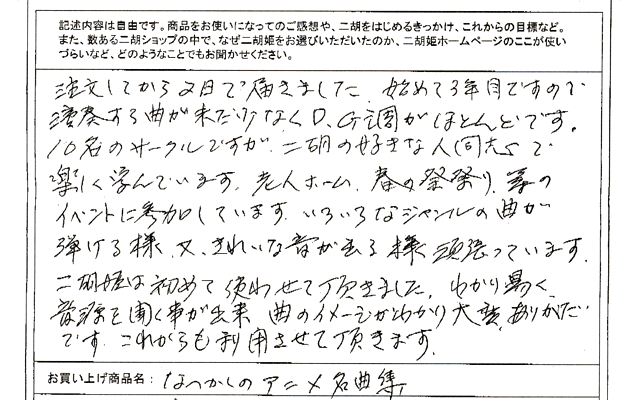 記述内容は自由です。商品をお使いになってのご感想や、二胡をはじめるきっかけ、これからの目標など。
また、数ある二胡ショップの中で、なぜ二胡姫をお選びいただいたのか、二胡姫ホームページのここが使い
づらいなど、どのようなことでもお聞かせください。
注文してから2日で届きました。始めて3年目ですので
演奏する曲が まだ少なく D、G調がほとんどです。
10名のサークルですが、二胡の好きな人同志で
楽しく学んでいます。老人ホーム、春の祭り、等の
イベントに参加しています。いろいろなジャンルの曲が
弾ける様、又、きれいな音が出る様 頑張っています。
二胡姫は初めて使わせて頂きました。わかり易く、
音源を聞く事が出来、曲のイメージがわかり 大変、ありがたい
です。これからも利用させて頂きます。
お買い上げ商品名：なつかしのアニメ名曲集